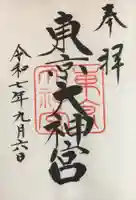 奉拝
東京大神宮
令和七年九月六日